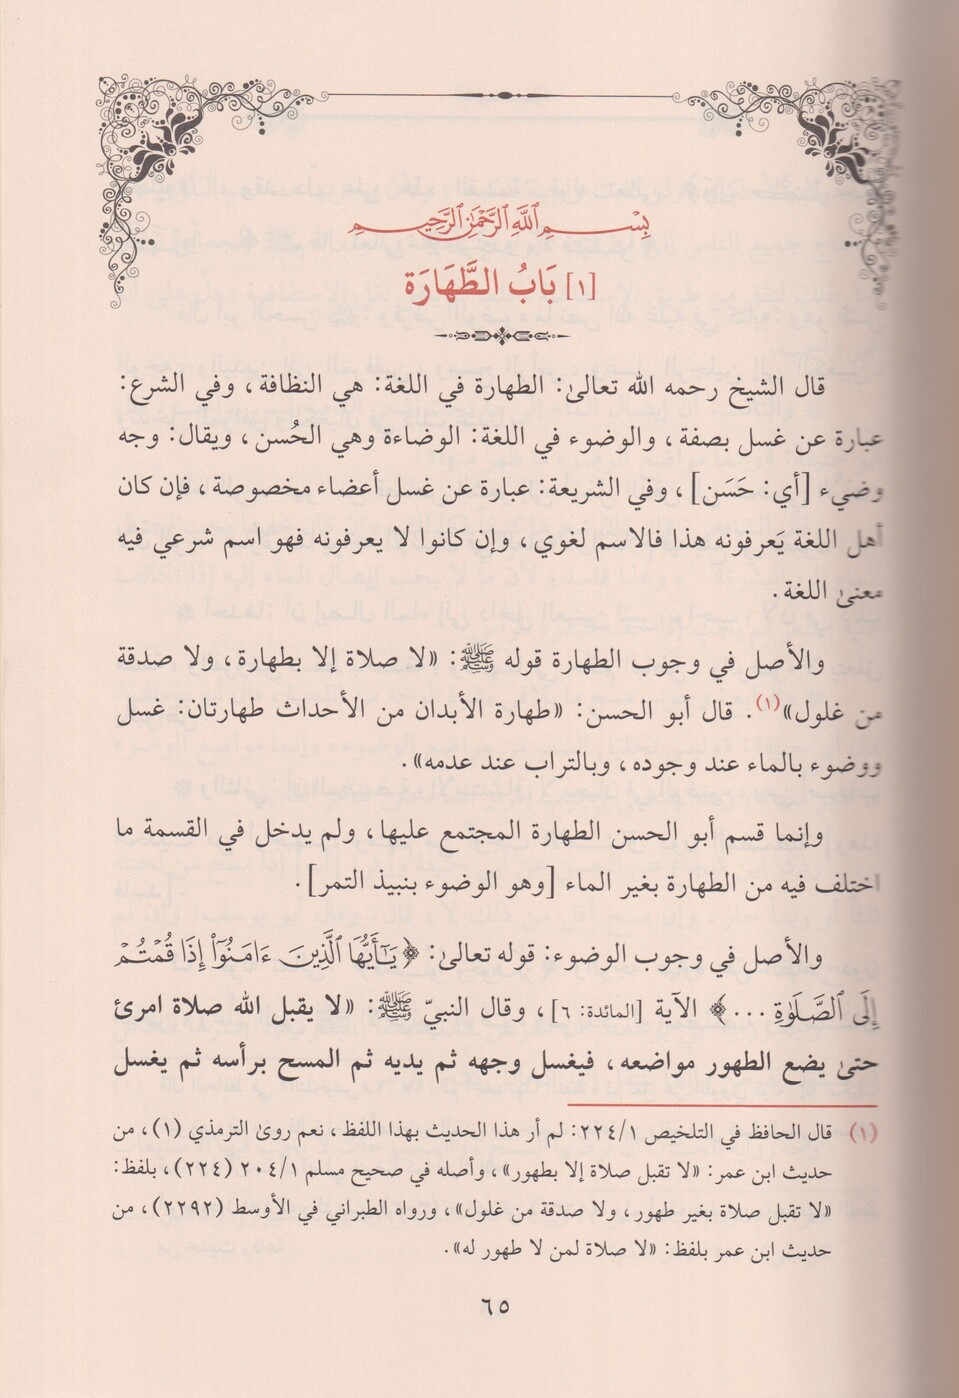 بِسْمِ ٱللَّهِ ٱلرَّحْمَٰنِ ٱلرَّحِيمِ
[١] بَابُ الطَّهَارَة
قال الشيخ رحمه الله تعالىٰ: الطهارة في اللغة: هي النظافة، وفي الشرع:
عبارة عن غسل بصفة، والوضوء في اللغة: الوضاءة وهي الحُسن، ويقال: وجه
وضيء [أي: حَسَن]، وفي الشريعة: عبارة عن غسل أعضاء مخصوصة، فإن كان
أهل اللغة يَعرفونه هذا فالاسم لغوي، وإن كانوا لا يعرفونه فهو اسم شرعي فيه
معنىٰ اللغة.
والأصل في وجوب الطهارة قوله ﷺ: «لا صلاة إلا بطهارة، ولا صدقة
من غلول»(١). قال أبو الحسن: «طهارة الأبدان من الأحداث طهارتان: غسل
ووضوء بالماء عند وجوده، وبالتراب عند عدمه».
وإنما قسم أبو الحسن الطهارة المجتمع عليها، ولم يدخل في القسمة ما
اختلف فيه من الطهارة بغير الماء [وهو الوضوء بنبيذ التمر].
والأصل في وجوب الوضوء: قوله تعالىٰ: ﴿يَٰٓأَيُّهَا ٱلَّذِينَ ءَامَنُوٓاْ إِذَا قُمۡتُمۡ
إِلَى ٱلصَّلَوٰةِ ...﴾ الآية [المائدة: ٦]، وقال النبيّ ﷺ: «لا يقبل الله صلاة امرئ
حتىٰ يضع الطهور مواضعه، فيغسل وجهه ثم يديه ثم المسح برأسه ثم يغسل
(١) قال الحافظ في التلخيص ٢٢٤/١: لم أر هذا الحديث بهذا اللفظ، نعم روىٰ الترمذي (١)، من
حديث ابن عمر: «لا تقبل صلاة إلا بطهور»، وأصله في صحيح مسلم ٢٠٤/١ (٢٢٤)، بلفظ:
«لا تقبل صلاة بغير طهور، ولا صدقة من غلول»، ورواه الطبراني في الأوسط (٢٢٩٢)، من
حديث ابن عمر بلفظ: «لا صلاة لمن لا طهور له».
٦٥